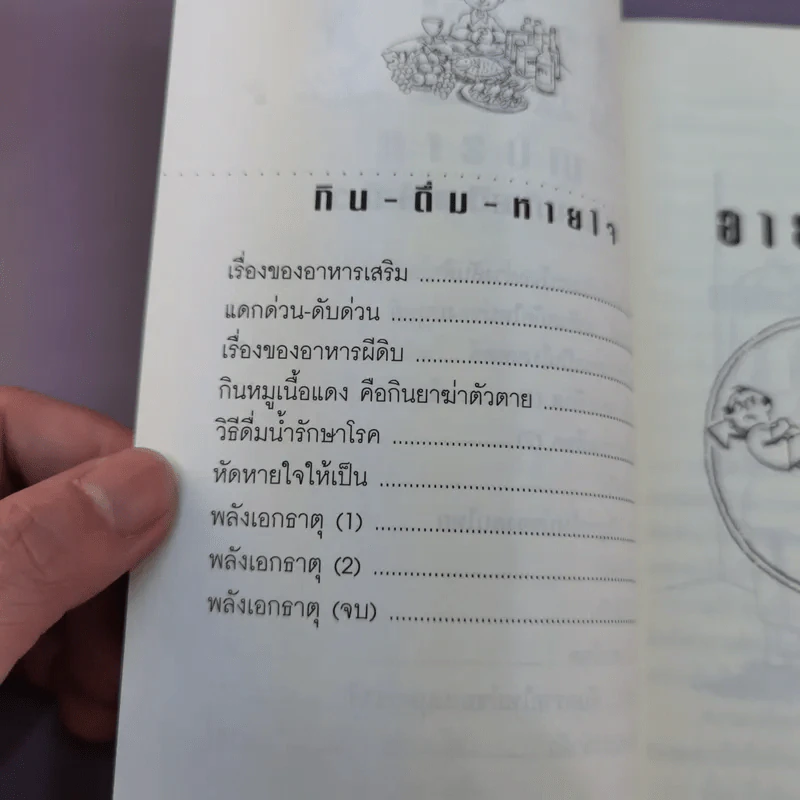 กิน - ดื่ม - หายใจ
เรื่องของอาหารเสริม
แดกด่วน-ดับด่วน
เรื่องของอาหารผีดิบ
กินหมูเนื้อแดง คือกินยาฆ่าตัวตาย
วิธีดื่มน้ำรักษาโรค
หัดหายใจให้เป็น
พลังเอกธาตุ (1)
พลังเอกธาตุ (2)
พลังเอกธาตุ (จบ)